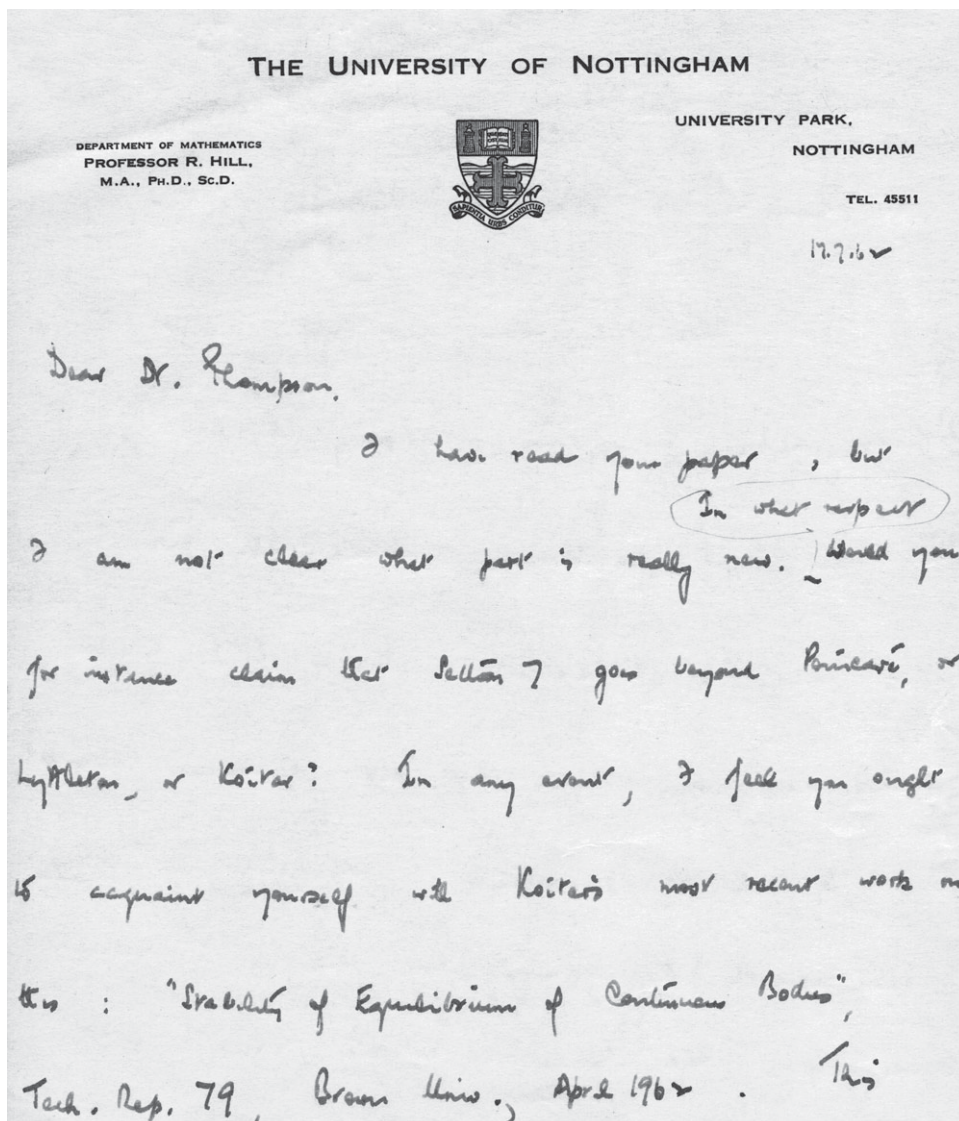 THE UNIVERSITY OF NOTTINGHAM
DEPARTMENT OF MATHEMATICS
PROFESSOR R. HILL,
M.A., PH.D., SC.D.
UNIVERSITY PARK,
NOTTINGHAM
TEL. 45511
SAPIENTIA URBS CONDITUR
17.7.62
Dear Dr. Thompson,
I have read your paper, but
In what respect
I am not clear what part is really new. Would you
for instance claim that Section 7 goes beyond Poincaré, or
Lyttleton, or Koiter? In any event, I feel you ought
to acquaint yourself with Koiter's most recent work on
this : "Stability of Equilibrium of Continuous Bodies",
Tech. Rep. 79, Brown Univ., April 1962. This